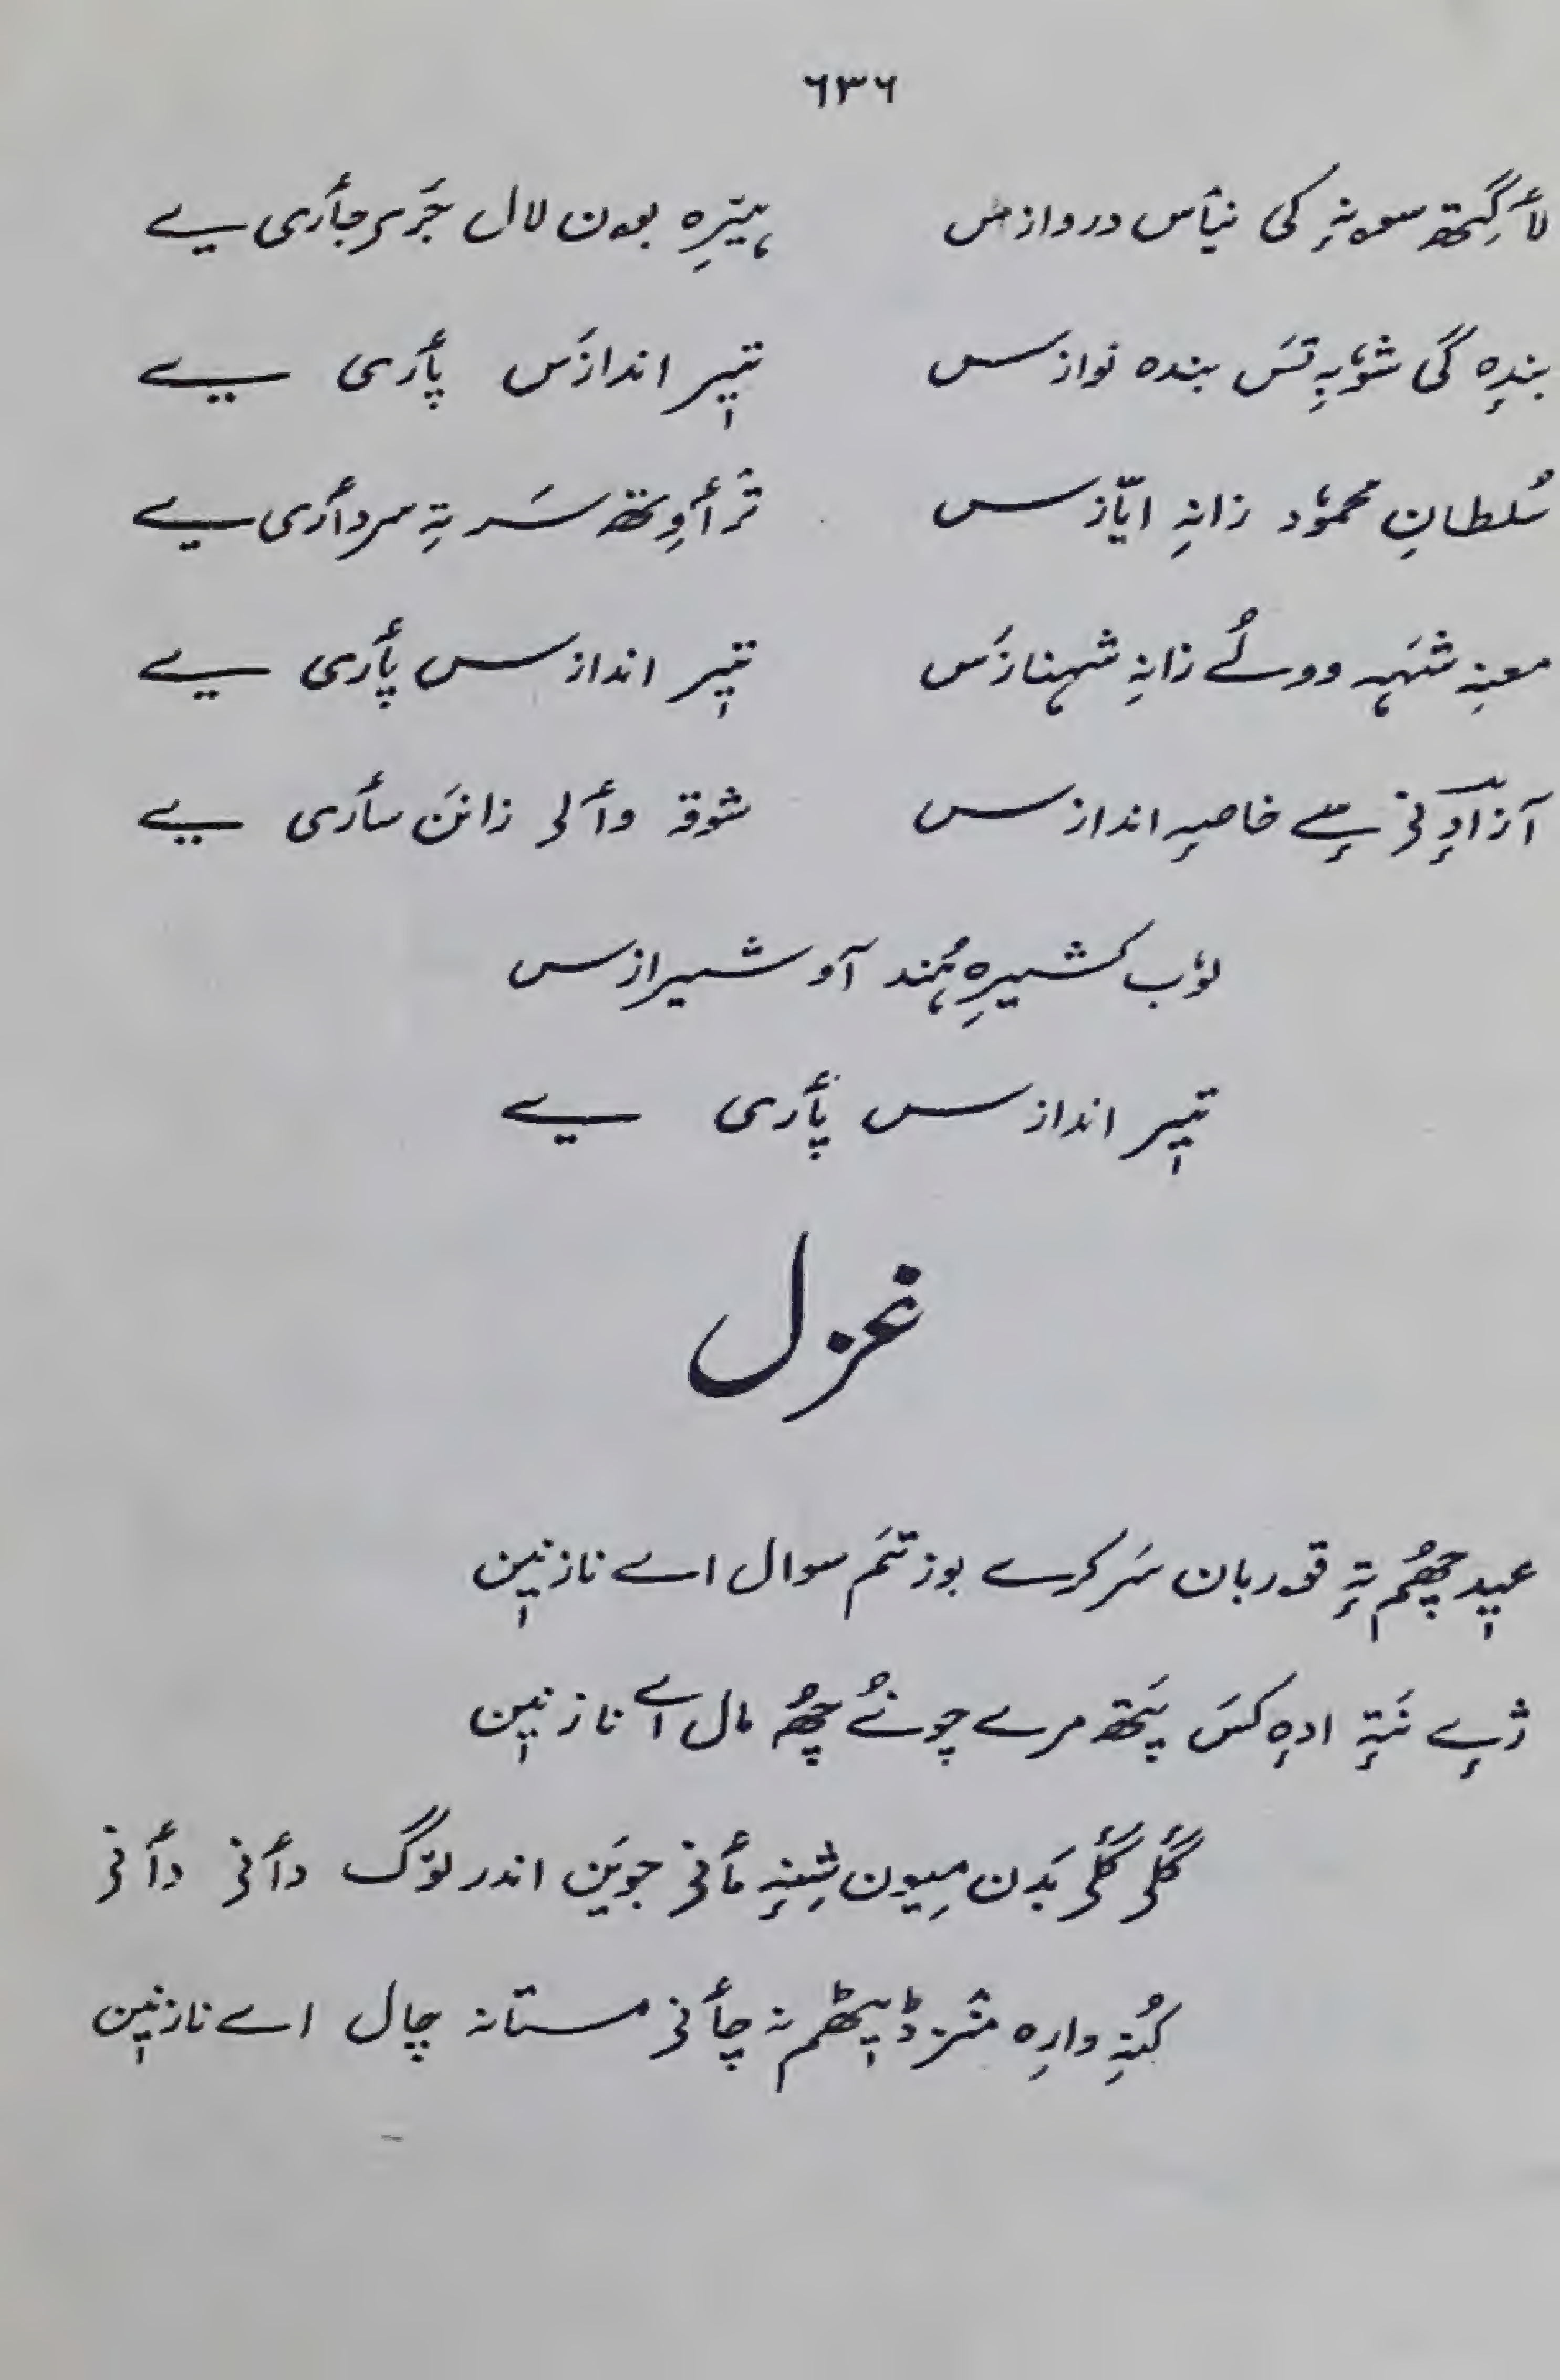 ٦٣٦
لأگِتھ سونہٕ کی نیأس دروازس ہیٚرِہ بون لال جَرۍ جأری یے
بندٕہ گی شوٗبہِ تسَ بندہ نوازس تیٖر اندازَس پأری یے
سُلطانِ محموٗد زانہِ ایّازس ترٛأوِتھ سَر تہِ سردأری یے
معنہِ شَہہ وولُے زانہِ شہنازَس تیٖر اندازس پأری یے
آزادٕنۍ یے خاصہٕ اندازس شوقہ وألۍ زانَن سأری یے
لوٗب کشیرِہ ہُند آو شیرازس
تیٖر اندازس پأری یے
غزل
عیٖد چھُم تہٕ قوربان سَر کرے بوزتَم سوال اے نازنیٖن
ژےٕ نَتہٕ ادٕہ کسَ پَتھ مرے چونُے چھُ مال اے نازنیٖن
گلۍ گلۍ بَدن میون شِینہٕ مأنۍ جویَن اندر لوٚگ دأنۍ دأنۍ
کُنہِ وارِہ منٛز ڈیٖٹھم نہ چأنۍ مستانہ چال اے نازنیٖن